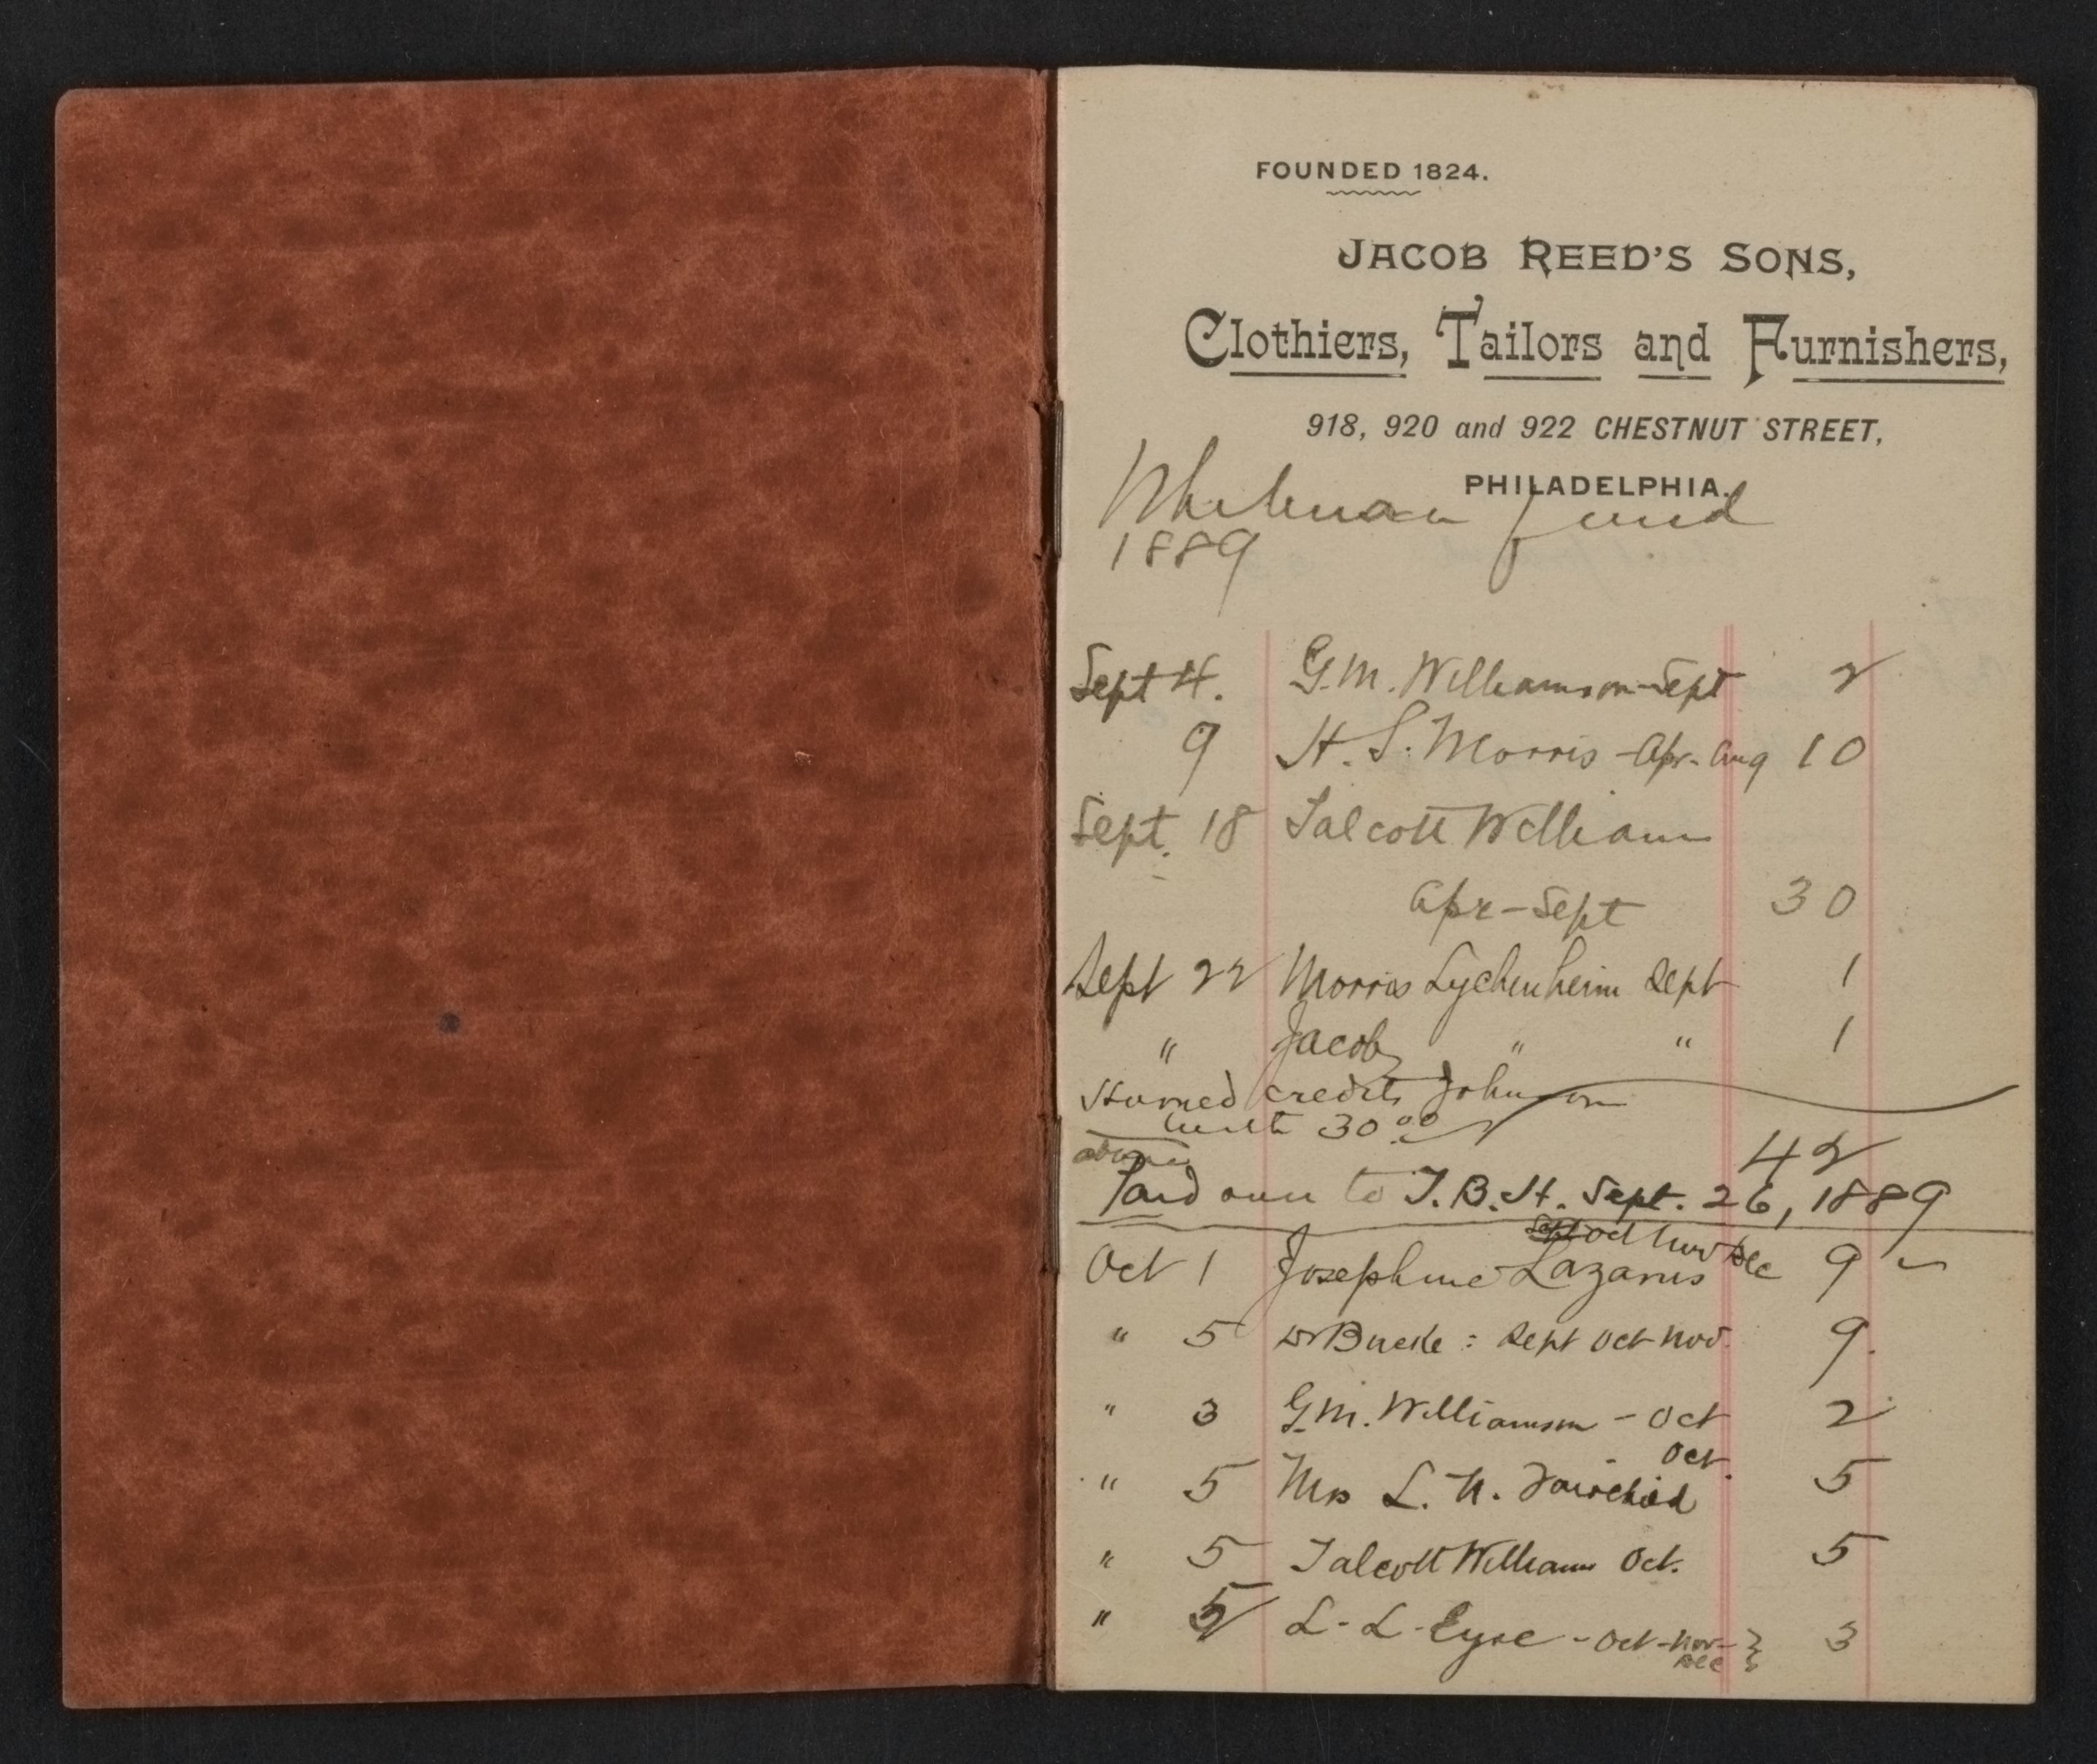 FOUNDED 1824.
JACOB REED'S SONS,
Clothiers, Tailors and Furnishers,
918, 920 and 922 CHESTNUT STREET,
PHILADELPHIA.
Whitman fund
1889
Sept 4. G.M. Williamson - Sept 2
9 H. S. Morris - Apr. Aug 10
Sept. 18 Talcott Williams
Apr - Sept 30
Sept 22 Morris Lychenheim Sept 1
" Jacob " " 1
Harned credits Johnson
with 30.00
42
above
Paid over to T. B. H. Sept. 26, 1889
Sept Oct Nov Dec
Oct 1 Josephine Lazarus 9
" 5 Dr Bucke : Sept Oct Nov. 9.
" 3 G.M. Williamson - Oct 2
Oct.
" 5 Mrs L. N. Fairchild 5
" 5 Talcott Williams Oct. 5
" 5 L. L. Eyre - Oct - Nov - 3
Dec